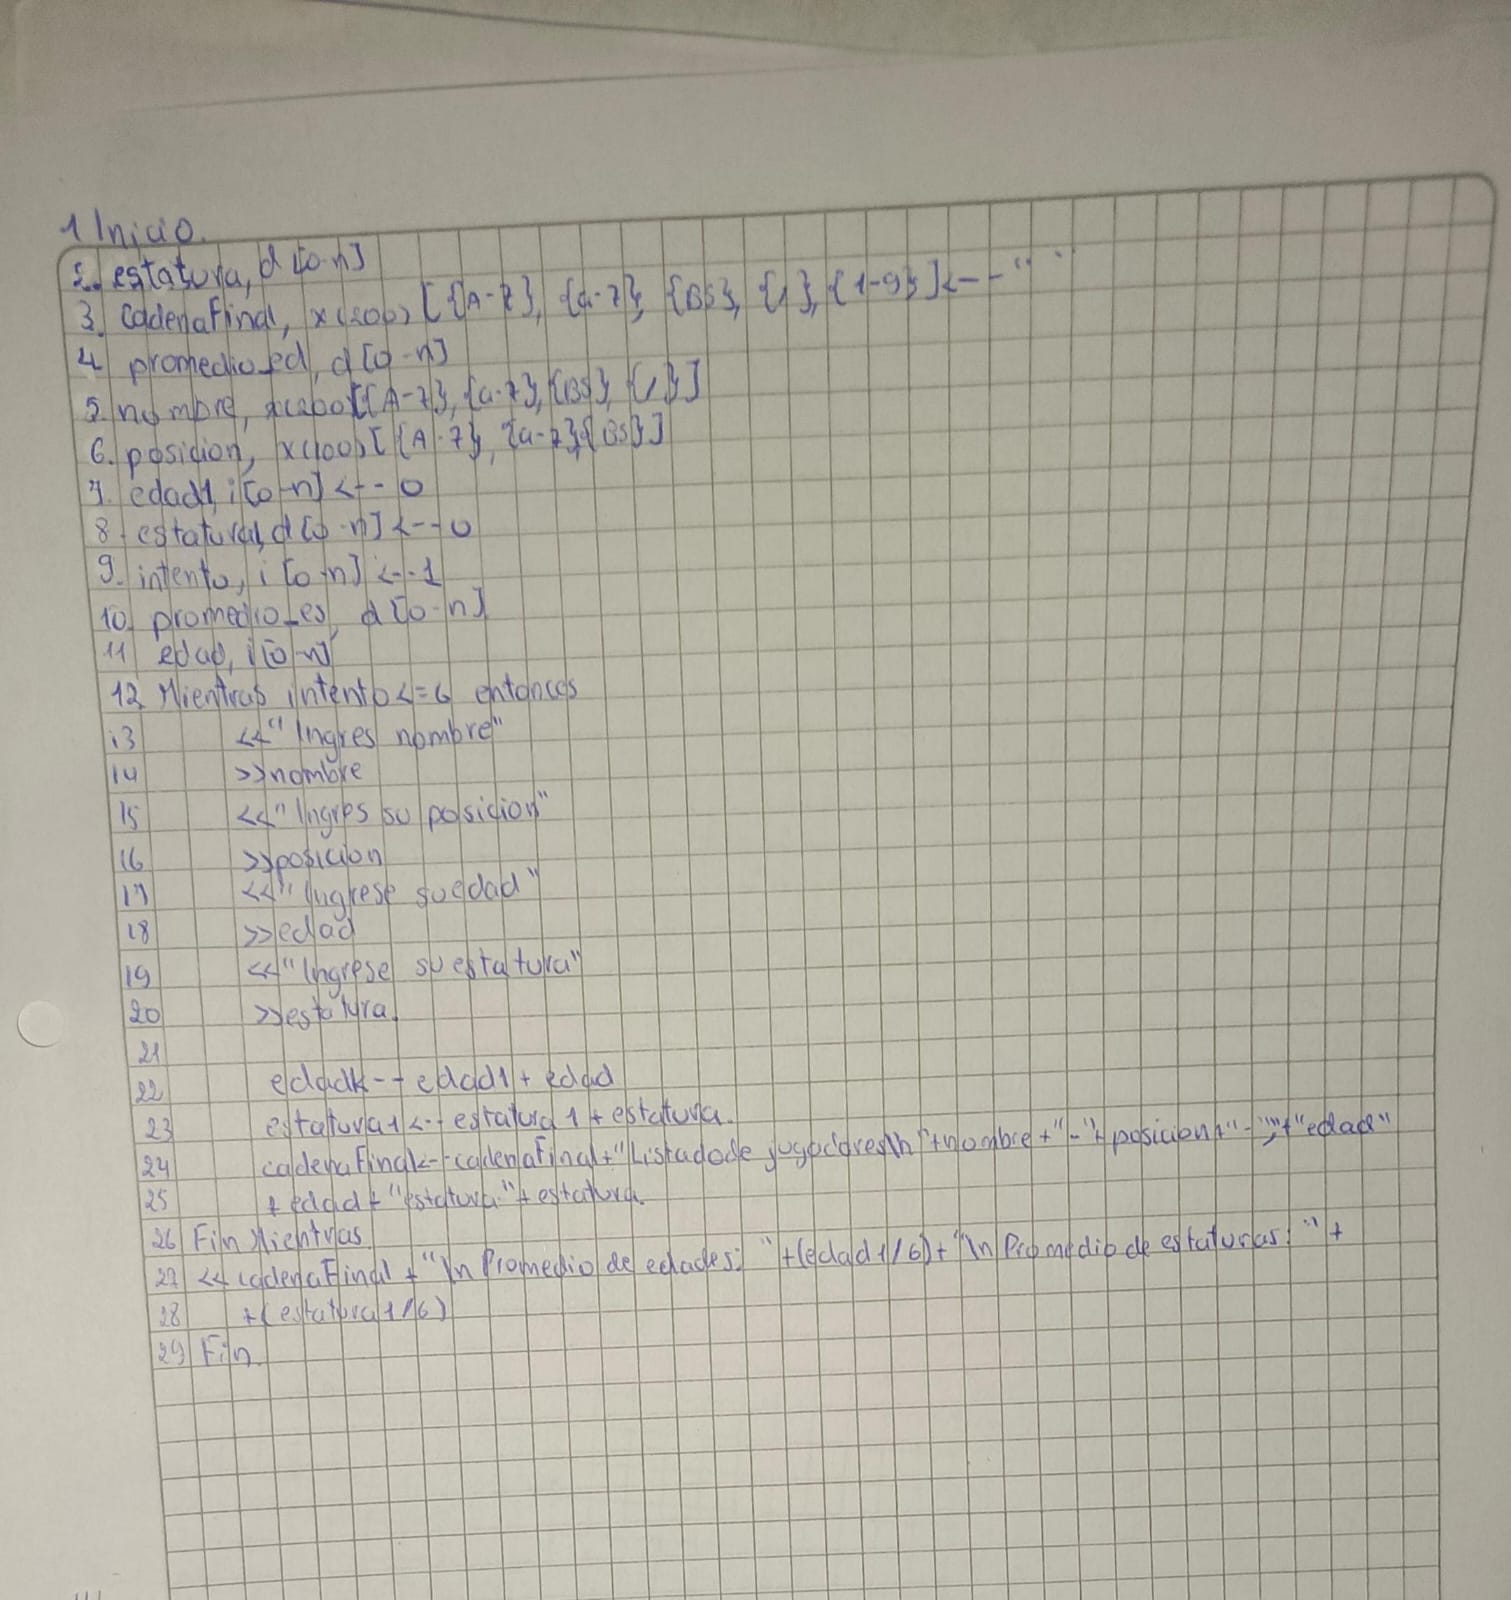 1 Inicio.
2. estatura, d [0-n]
3. cadenaFinal, x(200) [{A-Z}, {a-z}, {BS}, {1}, {1-9}] <-- " "
4 promedio_ed, d[0-n]
5. nombre, x(200)[{A-Z}, {a-z}, {BS}, {1}]
6. posicion, x(100)[{A-Z}, {a-z}{BS}]
7. edad1, i[0-n] <-- 0
8 estatura1, d[0-n] <-- 0
9. intento, i [0-n] <--1
10. promedio_es, d [0-n]
11 edad, i[0-n]
12 Mientras intento <=6 entonces
13 <<"Ingres nombre"
14 >>nombre
15 <<"Ingres su posicion"
16 >>posicion
17 <<"Ingrese su edad"
18 >>edad
19 <<"Ingrese su estatura"
20 >>estatura.
21
22 edad1<-- edad1 + edad
23 estatura1 <-- estatura 1 + estatura.
24 cadenaFinal<--cadenaFinal+"Listado de jugadores\n"+nombre+"-"+posicion+"-"+"edad"
25 + edad + "estatura:"+ estatura.
26 Fin Mientras
27 << cadenaFinal + "\n Promedio de edades: "+(edad1/6)+"\n Promedio de estaturas: "+
28 +(estatura1/6)
29 Fin.